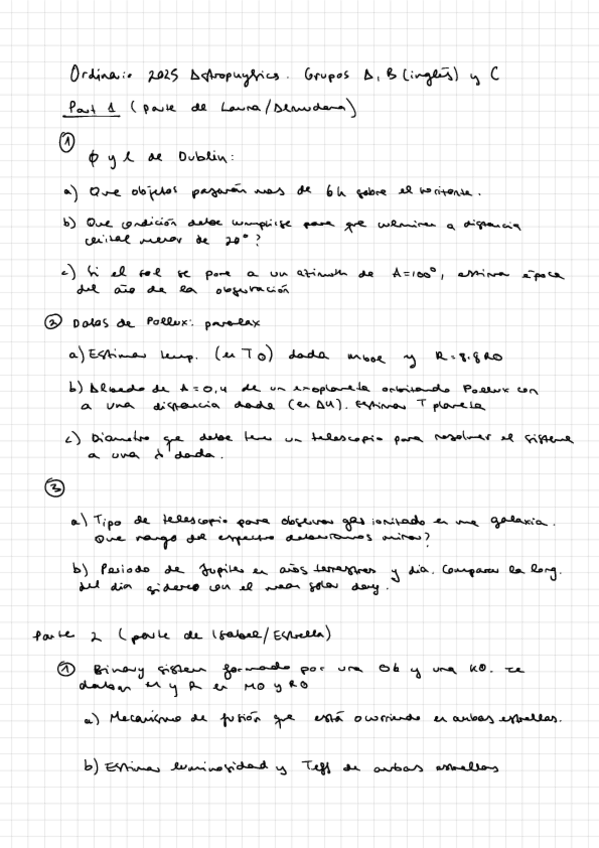 Ordinario 2025 Astrophysics. Grupos A, B (inglés) y C
Part 1 (parte de Laura/Almudena)
①
φ y l de Dublin:
a) Que objetos pasarán mas de 6h sobre el horizonte.
b) Que condición debe cumplirse para que culminen a distancia
cenital menor de 20°?
c) Si el sol se pone a un azimuth de A=100°, estima época
del año de la observación
② Datos de Pollux: paralax
a) Estimar temp. (en T⊙) dada mbol y R=8.8R⊙
b) Albedo de A=0,4 de un exoplaneta orbitando Pollux con
a una distancia dada (en AU). Estimar T planeta
c) Diametro que debe tener un telescopio para resolver el sistema
a una λ dada.
③
a) Tipo de telescopio para observar gas ionizado en una galaxia.
Que rango del espectro deberíamos mirar?
b) Periodo de Jupiter en años terrestres y dia. Comparar la long.
del dia sidereo con el mean solar day.
Parte 2 (parte de Isabel/Estrella)
① Binary sistem formado por una O6 y una K0. Te
daban M y R en M⊙ y R⊙
a) Mecanismo de fusión que está ocurriendo en ambas estrellas.
b) Estimar luminosidad y Teff de ambas estrellas